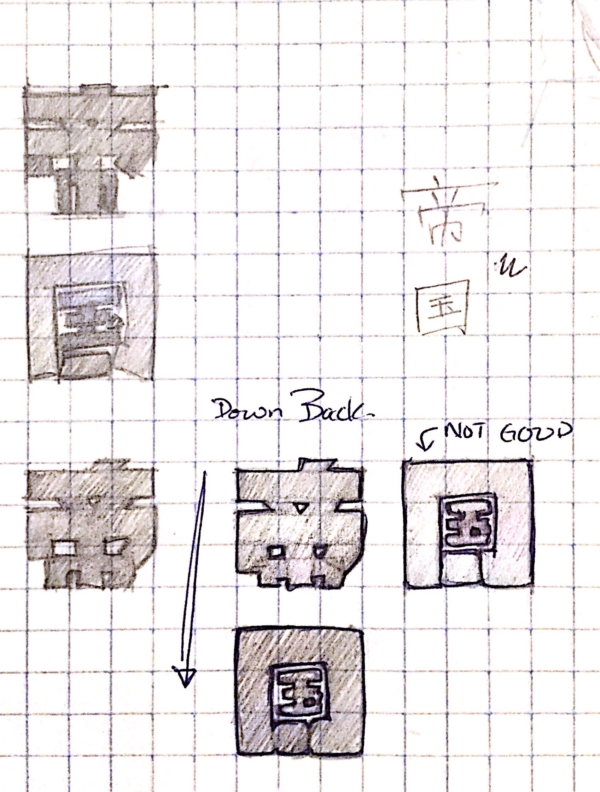 帝
国
Down Back.
NOT GOOD